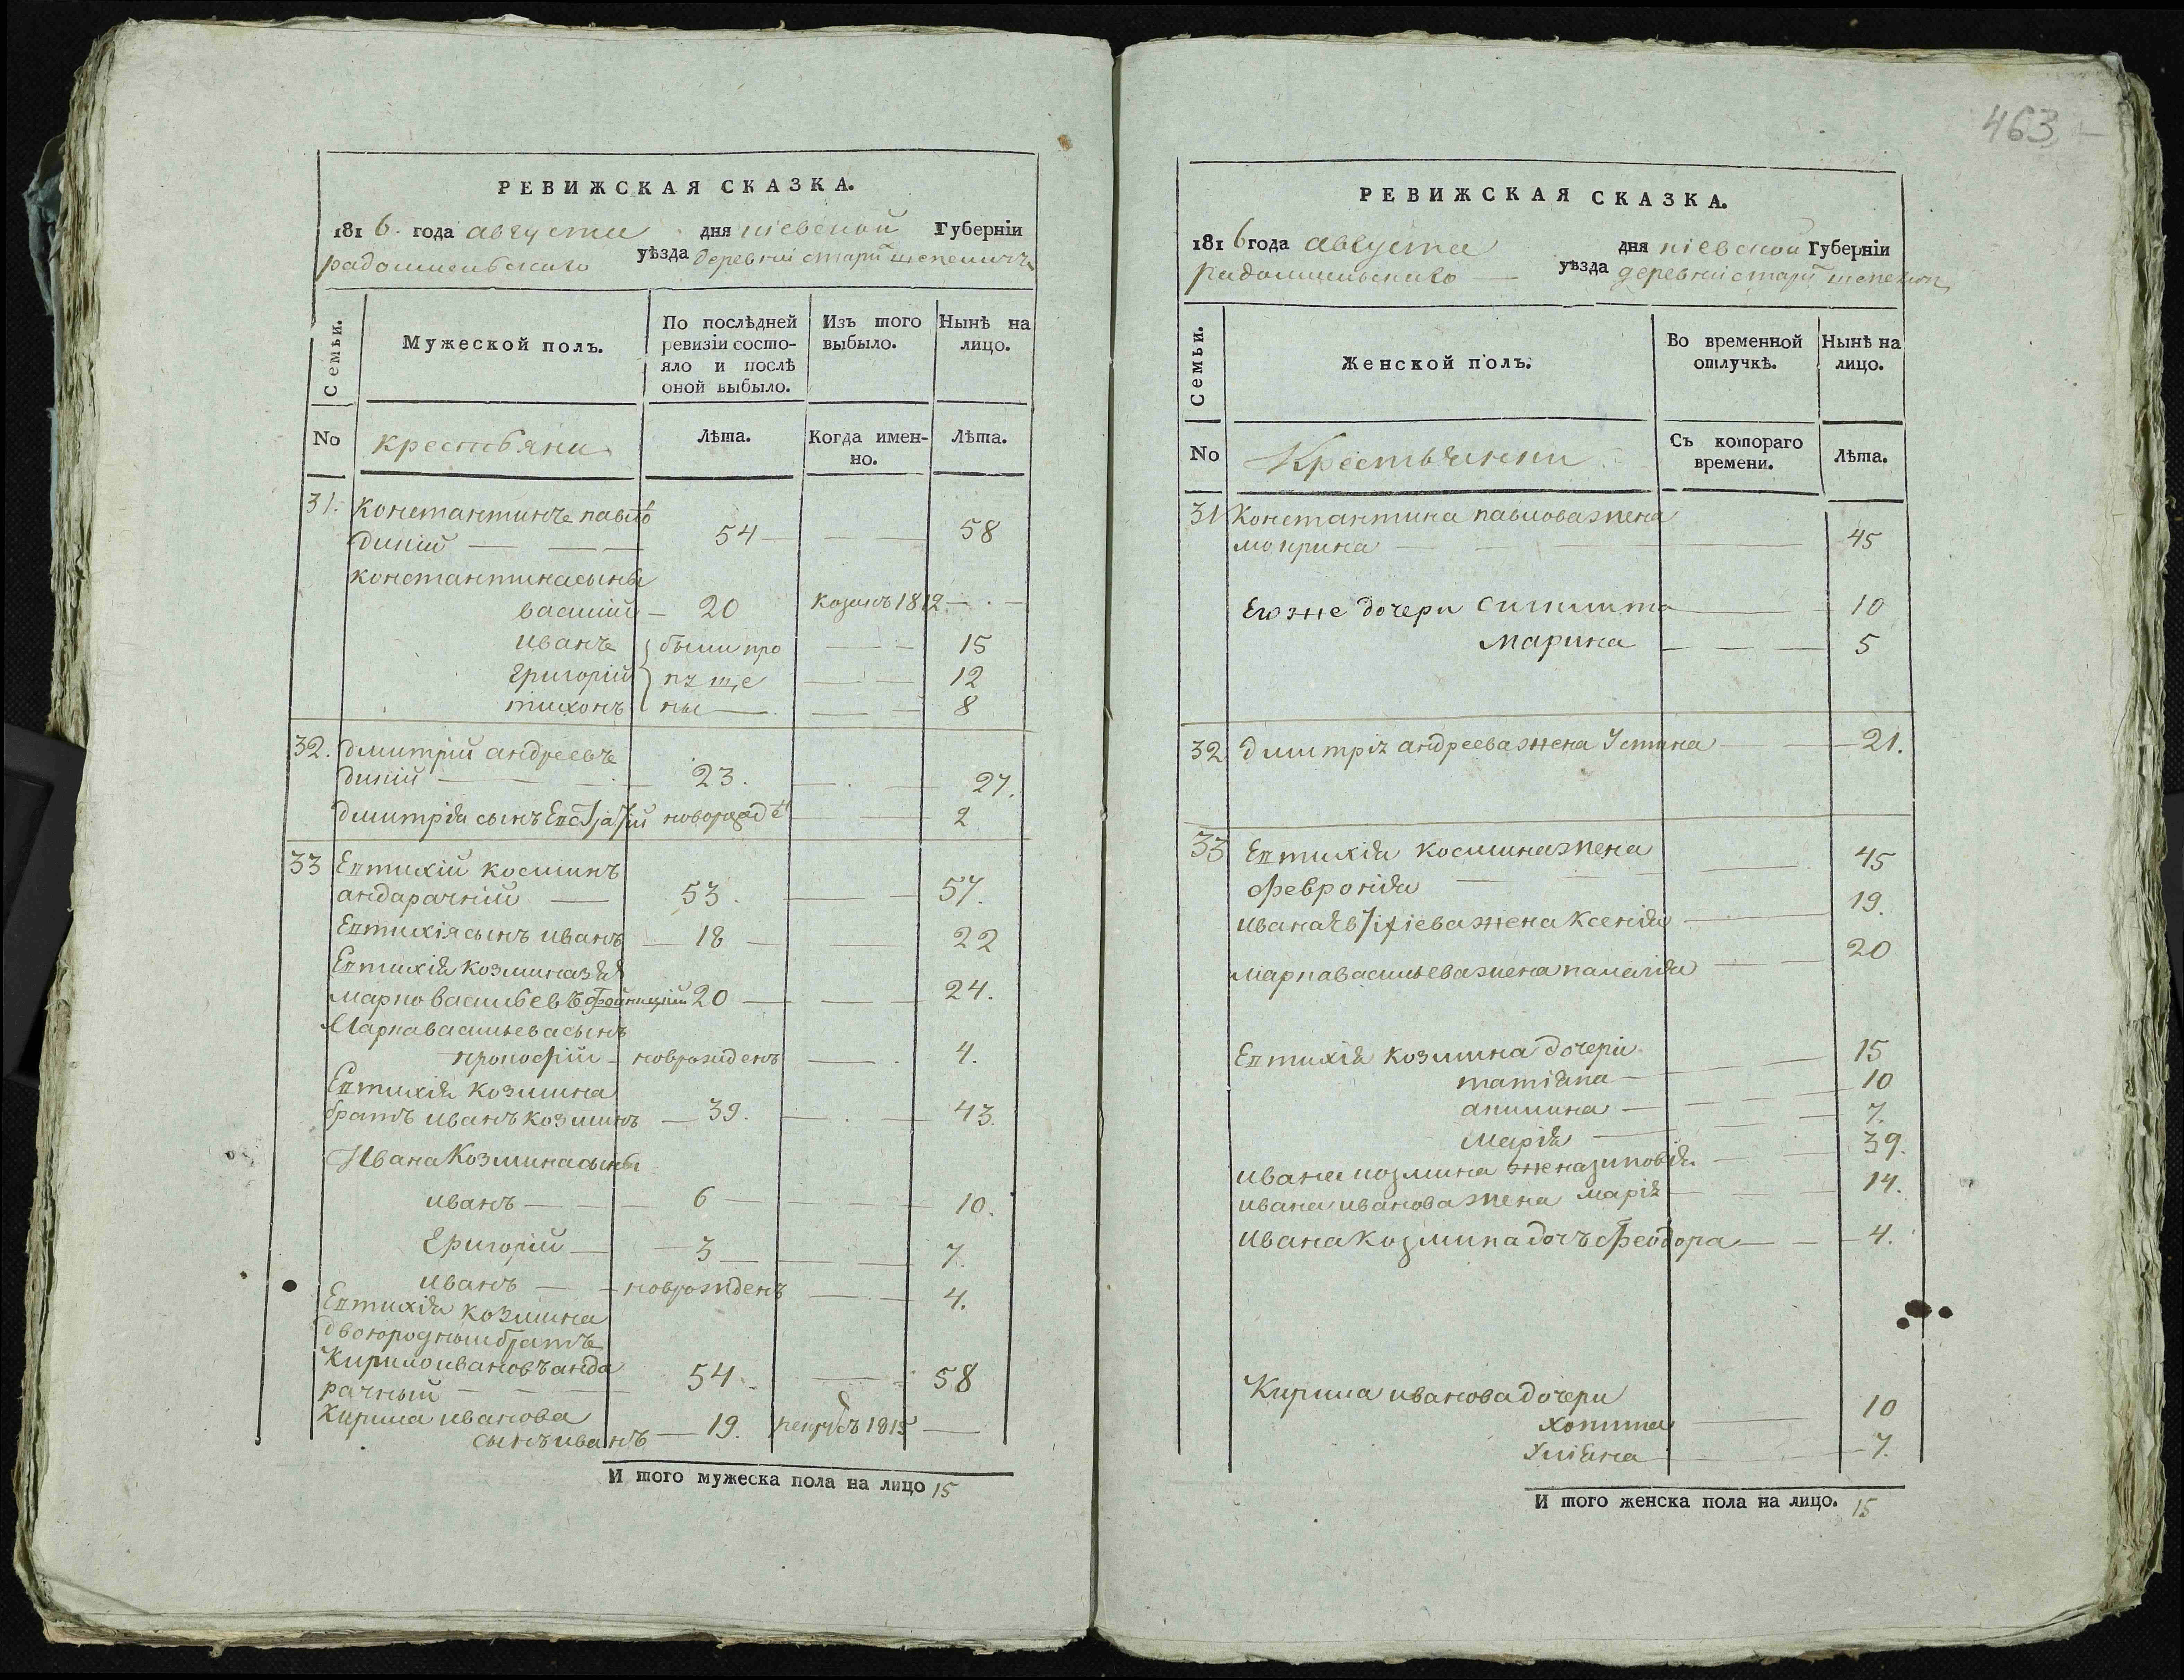 РЕВИЖСКАЯ СКАЗКА.
1816. года августа дня киевской Губерніи
радомысльскаго уѣзда деревни старй шепеличъ
Семьи. Мужеской полъ. По послѣдней ревизіи состояло и послѣ оной выбыло. Изъ того выбыло. Нынѣ на лицо.
No крестьяни Лѣта. Когда именно. Лѣта.
31. Константинъ павло
дикій — 54 — — 58
константина сыны
василій — 20 козакъ 1812 —
иванъ были про — 15
григорій пуще — 12
тихонъ ны — 8
32. дмитрій андреевъ
дикій — 23. — 27.
дмитрія сынъ новорожд — 2
33 Евтихій косминъ
андарачній — 53. — 57.
Евтихія сынъ иванъ — 18 — 22
Евтихія козмина зят
марко васильевъ 20 — 24.
Марка васильева сынъ
прокофій — новорожденъ — 4.
Евтихія козмина
братъ иванъ козминъ — 39. — 43.
Ивана Козмина сыны
иванъ — 6 — 10.
Григорій — 3 — 7.
иванъ — новрожденъ — 4.
Евтихія козмина
двоюродныи братъ
Кирило ивановъ анда
рачный — 54. — 58
Кирила иванова
сынъ иванъ — 19. 1815 —
И того мужеска пола на лицо 15
463
РЕВИЖСКАЯ СКАЗКА.
1816 года августа дня кіевской Губерніи
радомысльскаго — уѣзда деревни старй шепеличъ
Семьи. Женской полъ. Во временной отлучкѣ. Нынѣ на лицо.
No Крестьянки Съ котораго времени. Лѣта.
31 Константина павлова жена
мокрина — 45
Его же дочери — 10
Марина — 5
32 дмитрія андреева жена Устина — 21.
33 Евтихія космина жена 45
февронія — 19.
ивана жена ксенія
марка васильева жена пелагія — 20
Евтихія козмина дочери 15
татіана — 10
акилина — 7.
марія — 39.
ивана козмина жена зиновія
ивана иванова жена марія — 14.
ивана козмина дочъ феодора — 4.
Кирила иванова дочери
10
Уліяна — 7.
И того женска пола на лицо. 15